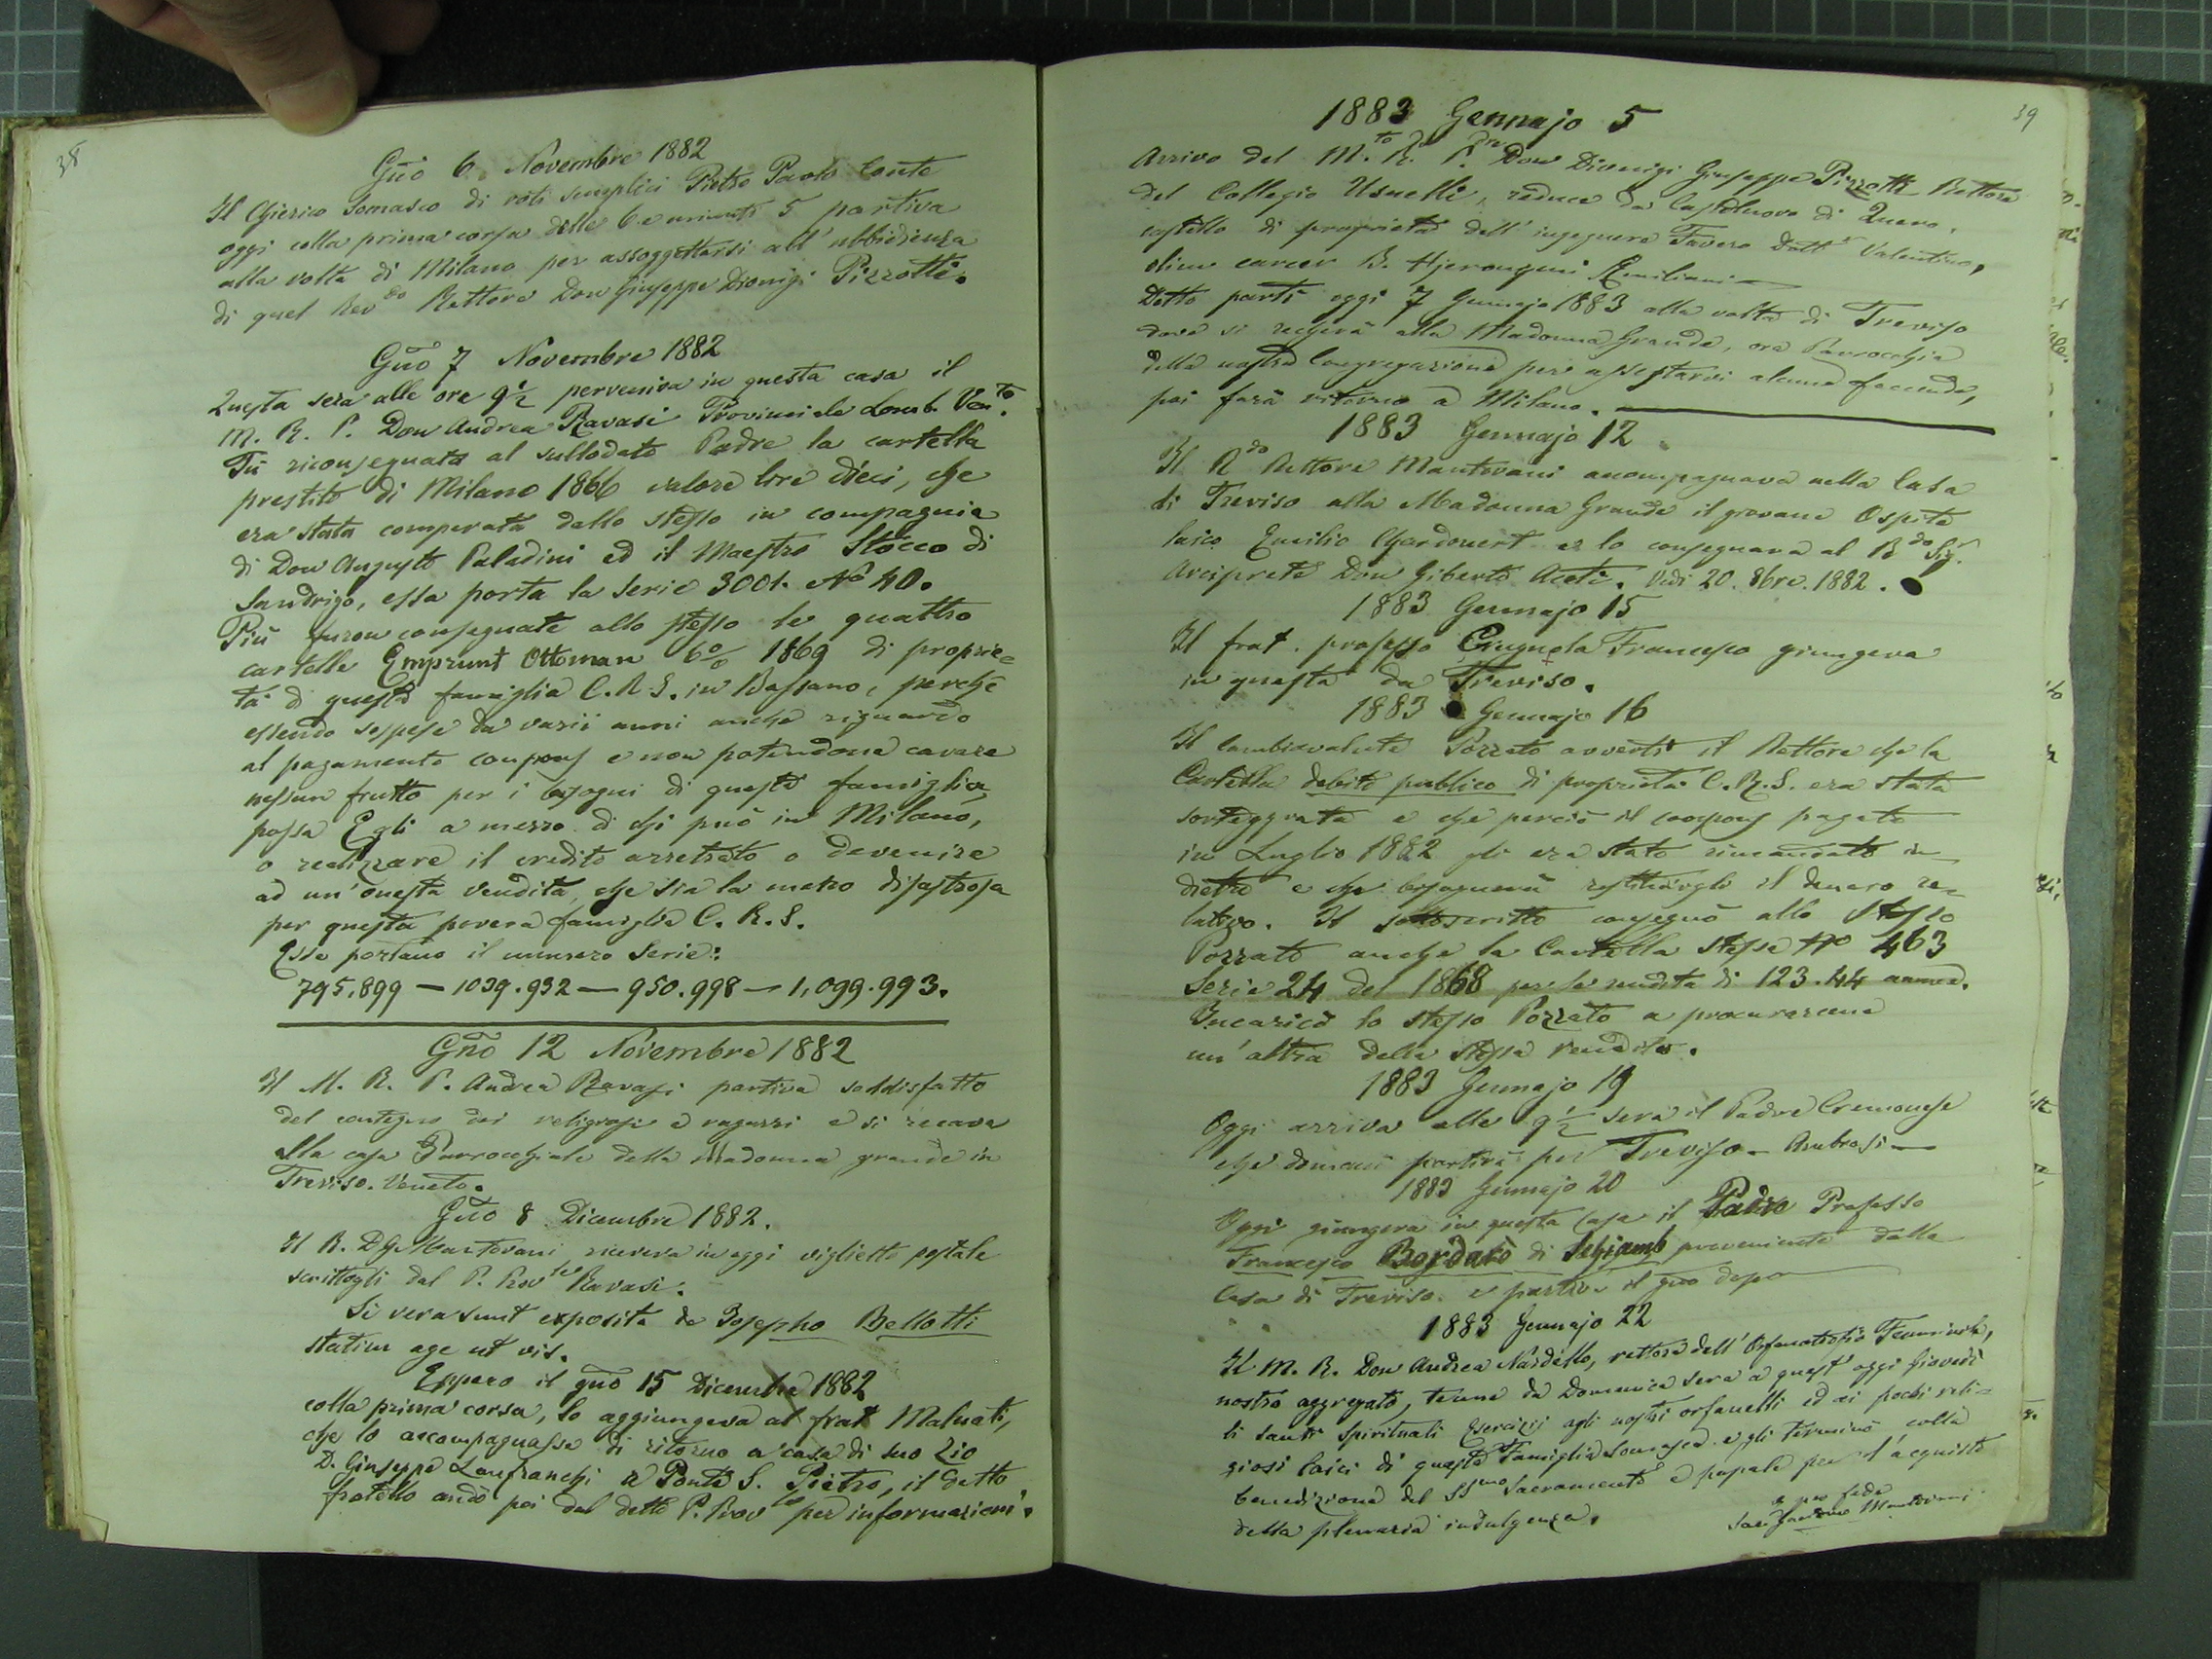 38
Gño 6. Novembre 1882
Il Chierico Somasco di voti semplici Pietro Paolo Conte
oggi colla prima corsa delle 6 e minuti 5 partiva
alla volta di Milano per assoggettarsi all'ubbidienza
di quel Rev.do Rettore Don Giuseppe Dionigi Pizzotti.
Gño 7 Novembre 1882
Questa sera alle ore 9½ perveniva in questa casa il
M. R. P. Don Andrea Ravasi Provinciale Lomb. Ven.to
Fù riconsegnata al sullodato Padre la cartella
prestito di Milano 1866 valore lire dieci, che
era stata comperata dallo stesso in compagnia
di Don Augusto Paladini ed il Maestro Stocco di
Sandrigo, essa porta la Serie 3001. No 40.
Più furon consegnate allo stesso le quattro
cartelle Emprunt Ottoman 6% 1869 di proprie=
tà di questa famiglia C.R.S. in Bassano, perchè
essendo sospese da varii anni anche riguardo
al pagamento coupons e non potendone cavare
nessun frutto per i bisogni di questa famiglia
possa Egli a mezzo di chi può in Milano,
o realizzare il credito arretrato o devenire
ad un'onesta vendita, che sia la meno disastrosa
per questa povera famiglia C. R. S.
Esse portano il numero Serie:
795.899 — 1039.932 — 950.998 — 1,099.993.
Gño 12 Novembre 1882
Il M. R. P. Andrea Ravasi partiva soddisfatto
del contegno dei religiosi e ragazzi e si recava
alla casa Parrocchiale della Madonna grande in
Treviso. Veneto.
Gño 8 Dicembre 1882.
Il R. D G Mantovani riceveva in oggi viglietto postale
scrittogli dal P. Prov.le Ravasi.
Si vera sunt exposita de Josepho Bellotti
statim age ut vis.
Eppero il gño 15 Dicembre 1882
colla prima corsa, lo aggiungeva al frat Malnati,
che lo accompagnasse di ritorno a casa di suo Zio
D. Giuseppe Lanfranchi a Ponte S. Pietro, il detto
fratello andò poi dal detto P. Prov.le per informazioni.
39
1883 Gennajo 5
Arrivo del M.to R. P.dre Don Dionigi Giuseppe Pizzotti Rettore
del Collegio Usuelli, reduce da Castelnuovo di Quero,
castello di proprietà dell'ingegnere Favero Dott.r Valentino,
olim carcer B. Hjeronymi Emiliani
Detto partì oggi 7 Gennajo 1883 alla volta di Treviso
dove si recherà alla Madonna Grande, ora Parrocchia
della nostra Congregazione per assestarvi alcune faccende,
poi farà ritorno a Milano.
1883 Gennajo 12
Il R.do Rettore Mantovani accompagnava nella Casa
di Treviso alla Madonna Grande il giovane Ospite
laico Emilio Chardonert e lo consegnava al R.do Sig.r
Arciprete Don Giberto Aceti. Vedi 20. 8bre. 1882.
1883 Gennajo 15
Il frat. professo Cingnola Francesco giungeva
in questa da Treviso.
1883 Gennajo 16
Il Cambiavalute Pozzato avvertì il Rettore che la
Cartella debito pubblico di proprietà C.R.S. era stata
sorteggiata e che perciò il coupons pagato
in Luglio 1882 gli era stato rimandato in
dietro e che bisognerà restituirgli il denaro re=
lativo. Il sottoscritto consegnò allo stesso
Pozzato anche la Cartella stessa No 463
Serie 24 del 1868 per la rendita di 123.44 annue.
Incaricò lo stesso Pozzato a procurarcene
un'altra della stessa rendita.
1883 Gennajo 19
Oggi arriva alle 9½ sera il Padre Cremonese
che domani partirà per Treviso — Ambrosi —
1883 Gennajo 20
Oggi giungeva in questa Casa il Padre Professo
Francesco Bordato di proveniente dalla
Casa di Treviso. e partiva il gño dopo
1883 Gennajo 22
Il M. R. Don Andrea Nardello, rettore dell'Orfanotrofio Femminile,
nostro aggregato, tenne da Domenica sera a quest'oggi Giovedì
li santi Spirituali Esercizj agli nostri orfanelli ed ai pochi reli=
giosi laici di questa Famiglia Somasca e gli terminò colla
benedizione del SSmo Sacramento e papale per l'acquisto
della plenaria indulgenza.
e per fede
Mantovani